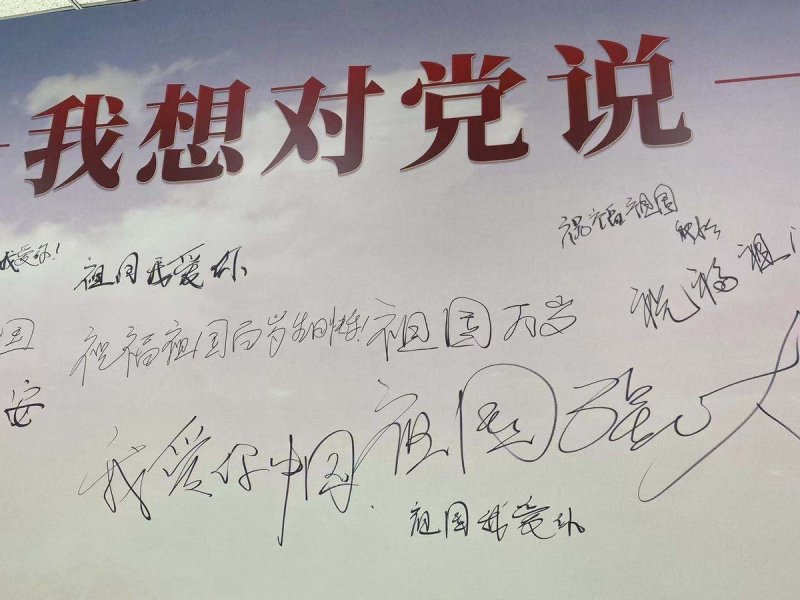 我想对党说
祝福祖国
我爱你!
祖国我爱你
祝福祖
祝福祖国百岁生日快乐!
祖国万岁
国
安
祖国强大
我爱你中国
祖国我爱你